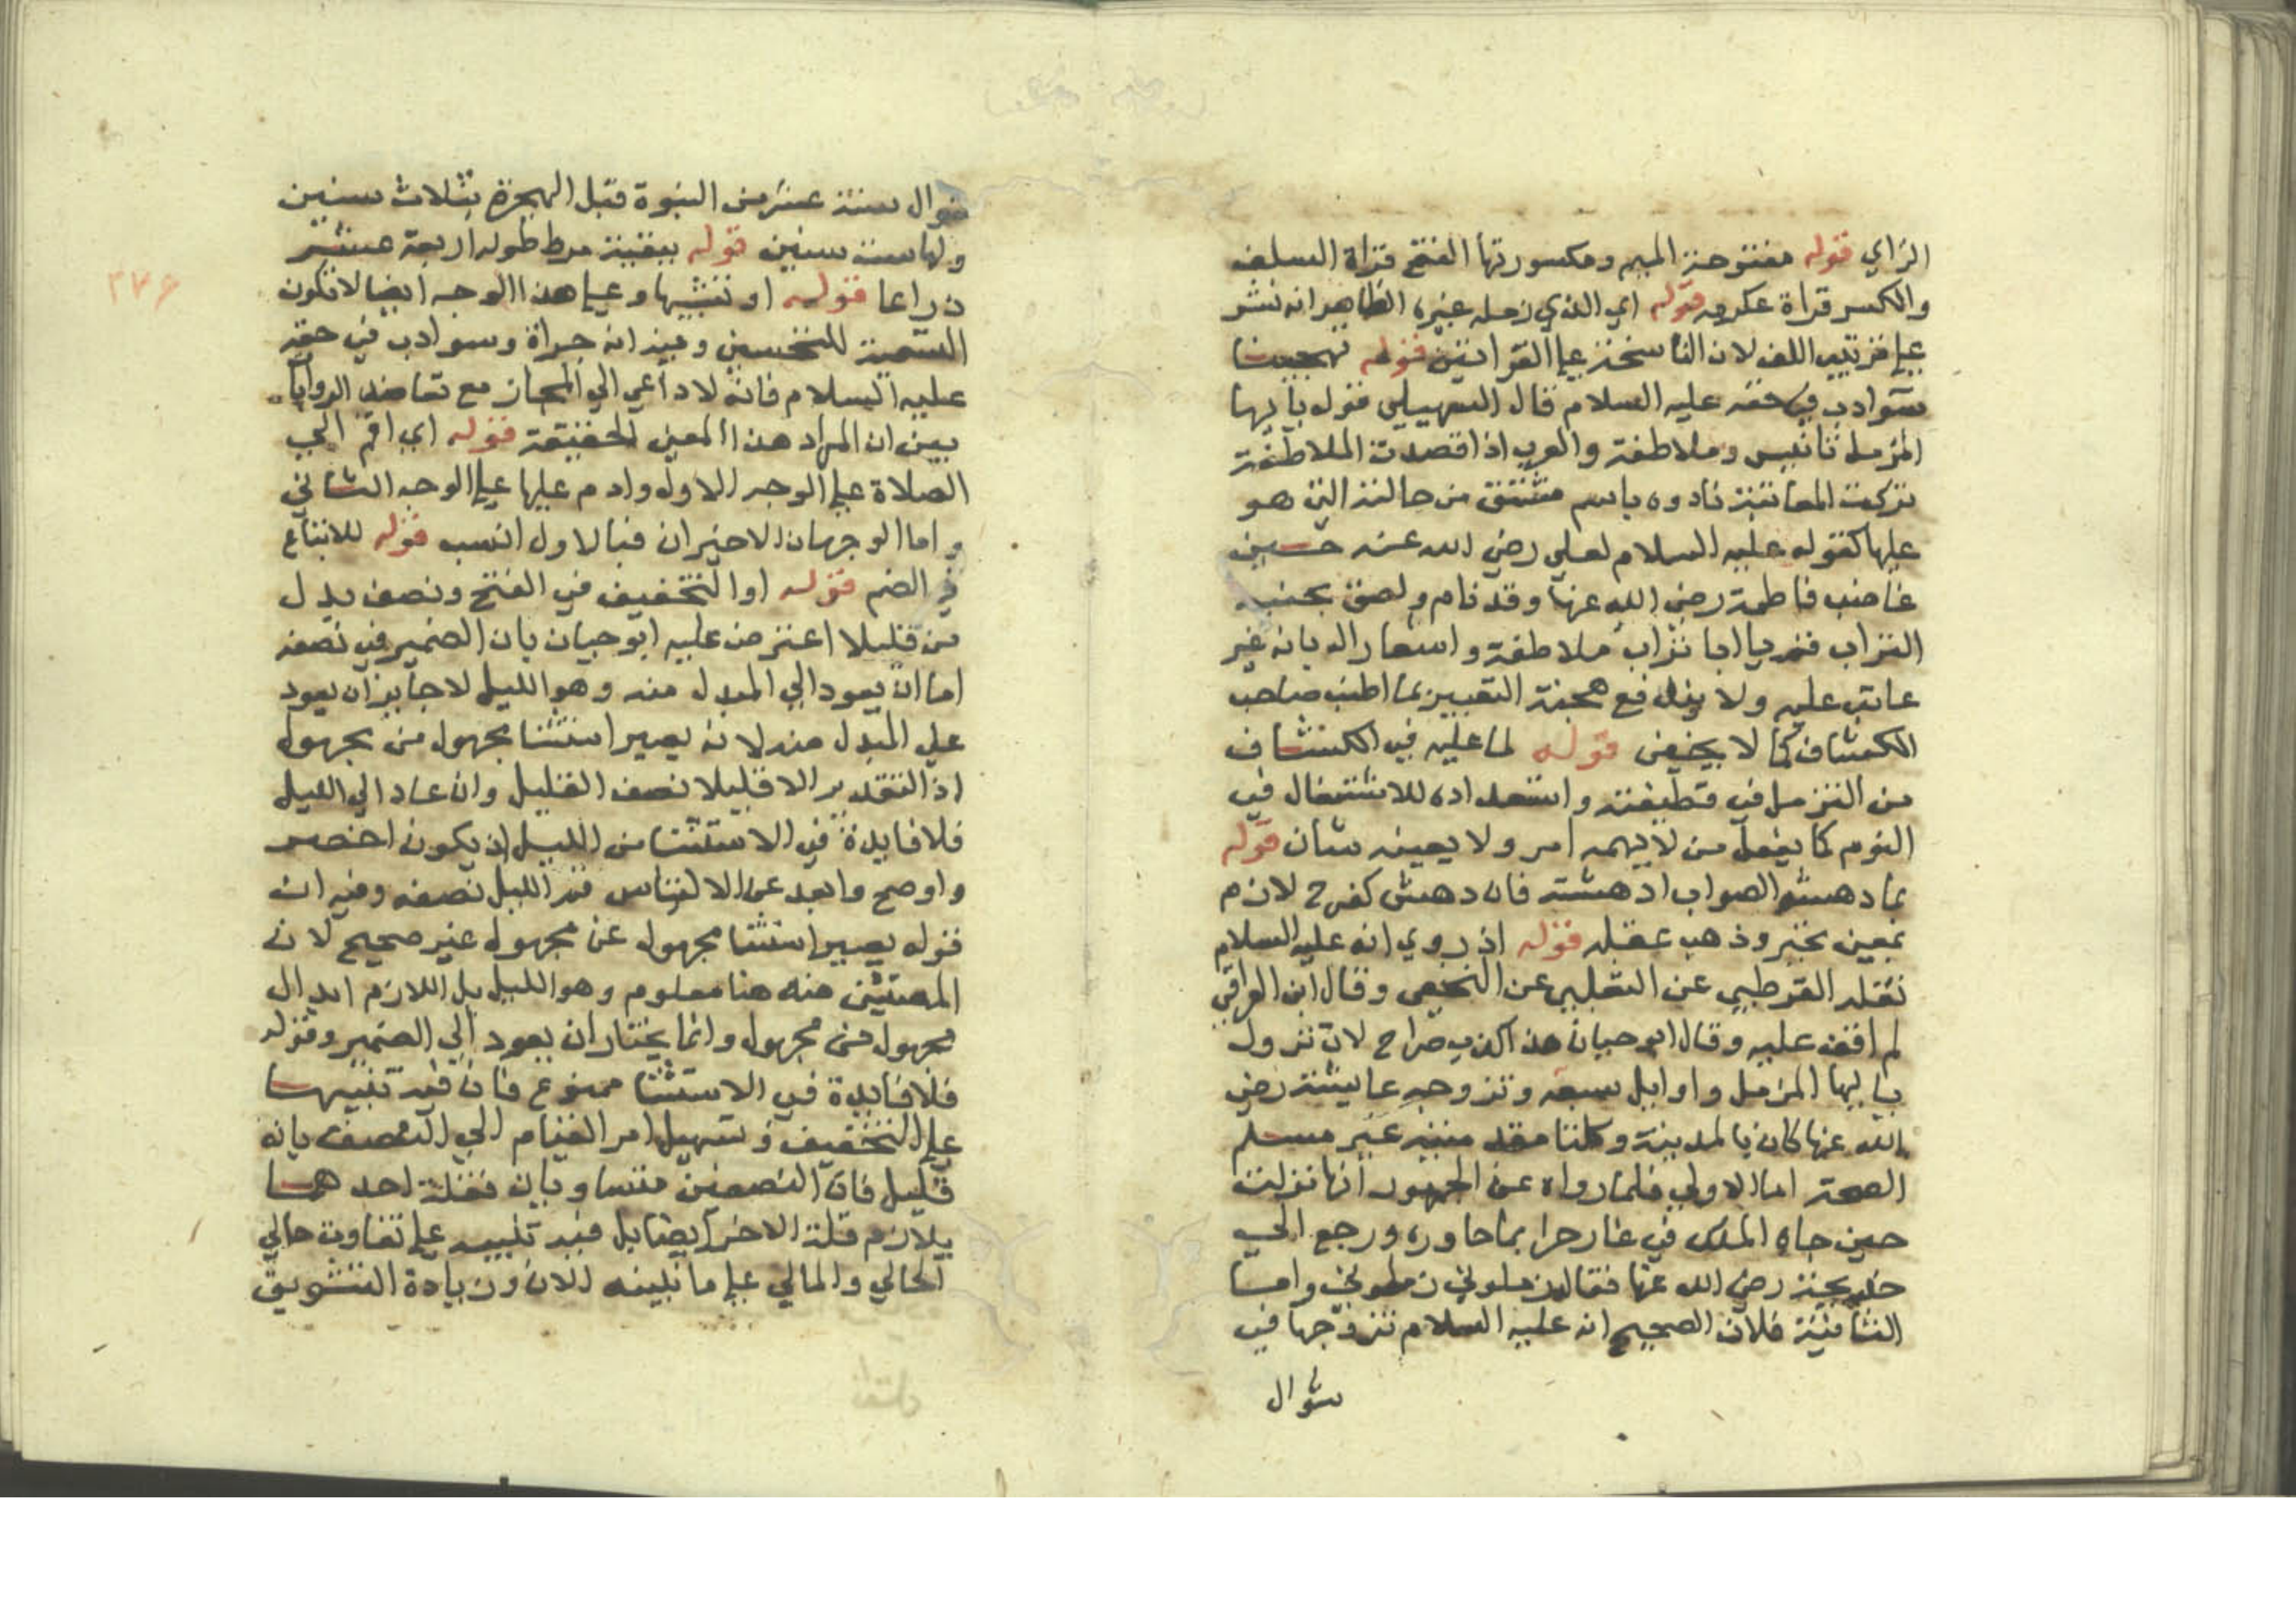 الزاي قوله مفتوحة الميم ومكسورتها الفتح قراة السلف
والكسر قراة عكرمه قوله اي الذي زمله غيره الظاهر انه نشر
علي ترتيب اللف لان الناسخة علي القراتين قوله تهجينا
سوادب في حقه عليه السلام قال السهيلي قوله يا ايها
المزمل تانيس وملاطفة والعرب اذا قصدت الملاطفة
بترك المعاتبة نادوه باسم مشتق من حالته التي هو
عليها كقوله عليه السلام لعلي رضي الله عنه حين
غاضب فاطمة رضي الله عنها وقد نام ولصق بجنبه
التراب قم يا ابا تراب ملاطفة واشعار اله بانه غير
عاتب عليه ولا يندفع هجنة التعبير بما اطنب صاحب
الكشاف كما لا يخفى قوله لما عليه في الكشاف
من التزمل في قطيفته واستعداده للاشتغال في
النوم كما يفعل من لا يهمه امر ولا يعينه شان قوله
بما دهشه الصواب ادهشته فان دهش كفرح لازم
بمعين تخير وذهب عقله قوله اذ روي انه عليه السلام
نقله القرطبي عن الثعلبي عن النخعي وقال ابن العراقي
لم اقف عليه وقال ابو حيان هذا كذب صراح لان نزول
يا ايها المزمل واوايل سبعه وتزوجه عايشة رضي
الله عنها كان بالمدينة وكلتا مقدمتيه غير مسلم
الصحة اما الاولي فلما رواه عن الجمهور انها نزلت
حين جاه الملك في غار حرا بما حاوره ورجع الي
خديجة رضي الله عنها فقال زملوني زملوني واما
الثانية فلان الصحيح انه عليه السلام تزوجها في
شوال
شوال سنة عشر من النبوة قبل الهجرة بثلاث سنين
ولها ست سنين قوله ببقية مرط طوله اربعة عشر
ذراعا قوله او تشبيها وعلي هذا الوجه ايضا لا تكون
التسمية للتحسين وفيه انه جراة وسوادب في حقه
عليه السلام فانه لا داعي الي المجاز مع تعاضد الروايا
بين ان المراد هذا المعين الحقيقة قوله اي اقم الي
الصلاة علي الوجه الاول وادم عليها علي الوجه الثاني
واما الوجهان الاخيران فبالاول انسب قوله للاتباع
في الضم قوله او التخفيف في الفتح ونصف بدل
من قليلا اعترض عليه ابو حيان بان الضمير في نصفه
اما ان يعود الي المبدل منه وهو الليل لا جايز ان يعود
علي المبدل منه لانه يصير استثنا مجهول من مجهول
اذ التقدير الا قليلا نصف القليل وان عاد الي الليل
فلا فايدة في الاستثنا من الليل اذ يكون اخصر
واوضح وابعد عن الالتباس قم الليل نصفه وفيه ان
قوله يصير استثنا مجهول عن مجهول غير صحيح لان
المستثنى منه هنا معلوم وهو الليل بل اللازم ابدال
مجهول من مجهول وانما يختار ان يعود الي الضمير وقوله
فلا فايدة في الاستثنا ممنوع فان فيه تنبيها
علي التخفيف وتسهيل امر القيام الي النصف بانه
قليل فان النصفين متساويان فقلة احدهما
يلازم قلة الاخر ايضا بل فيه تنبيه علي تفاوت حالي
الحالي والمالي علي ما نبينه الان وزيادة التشويق
٢٧٦